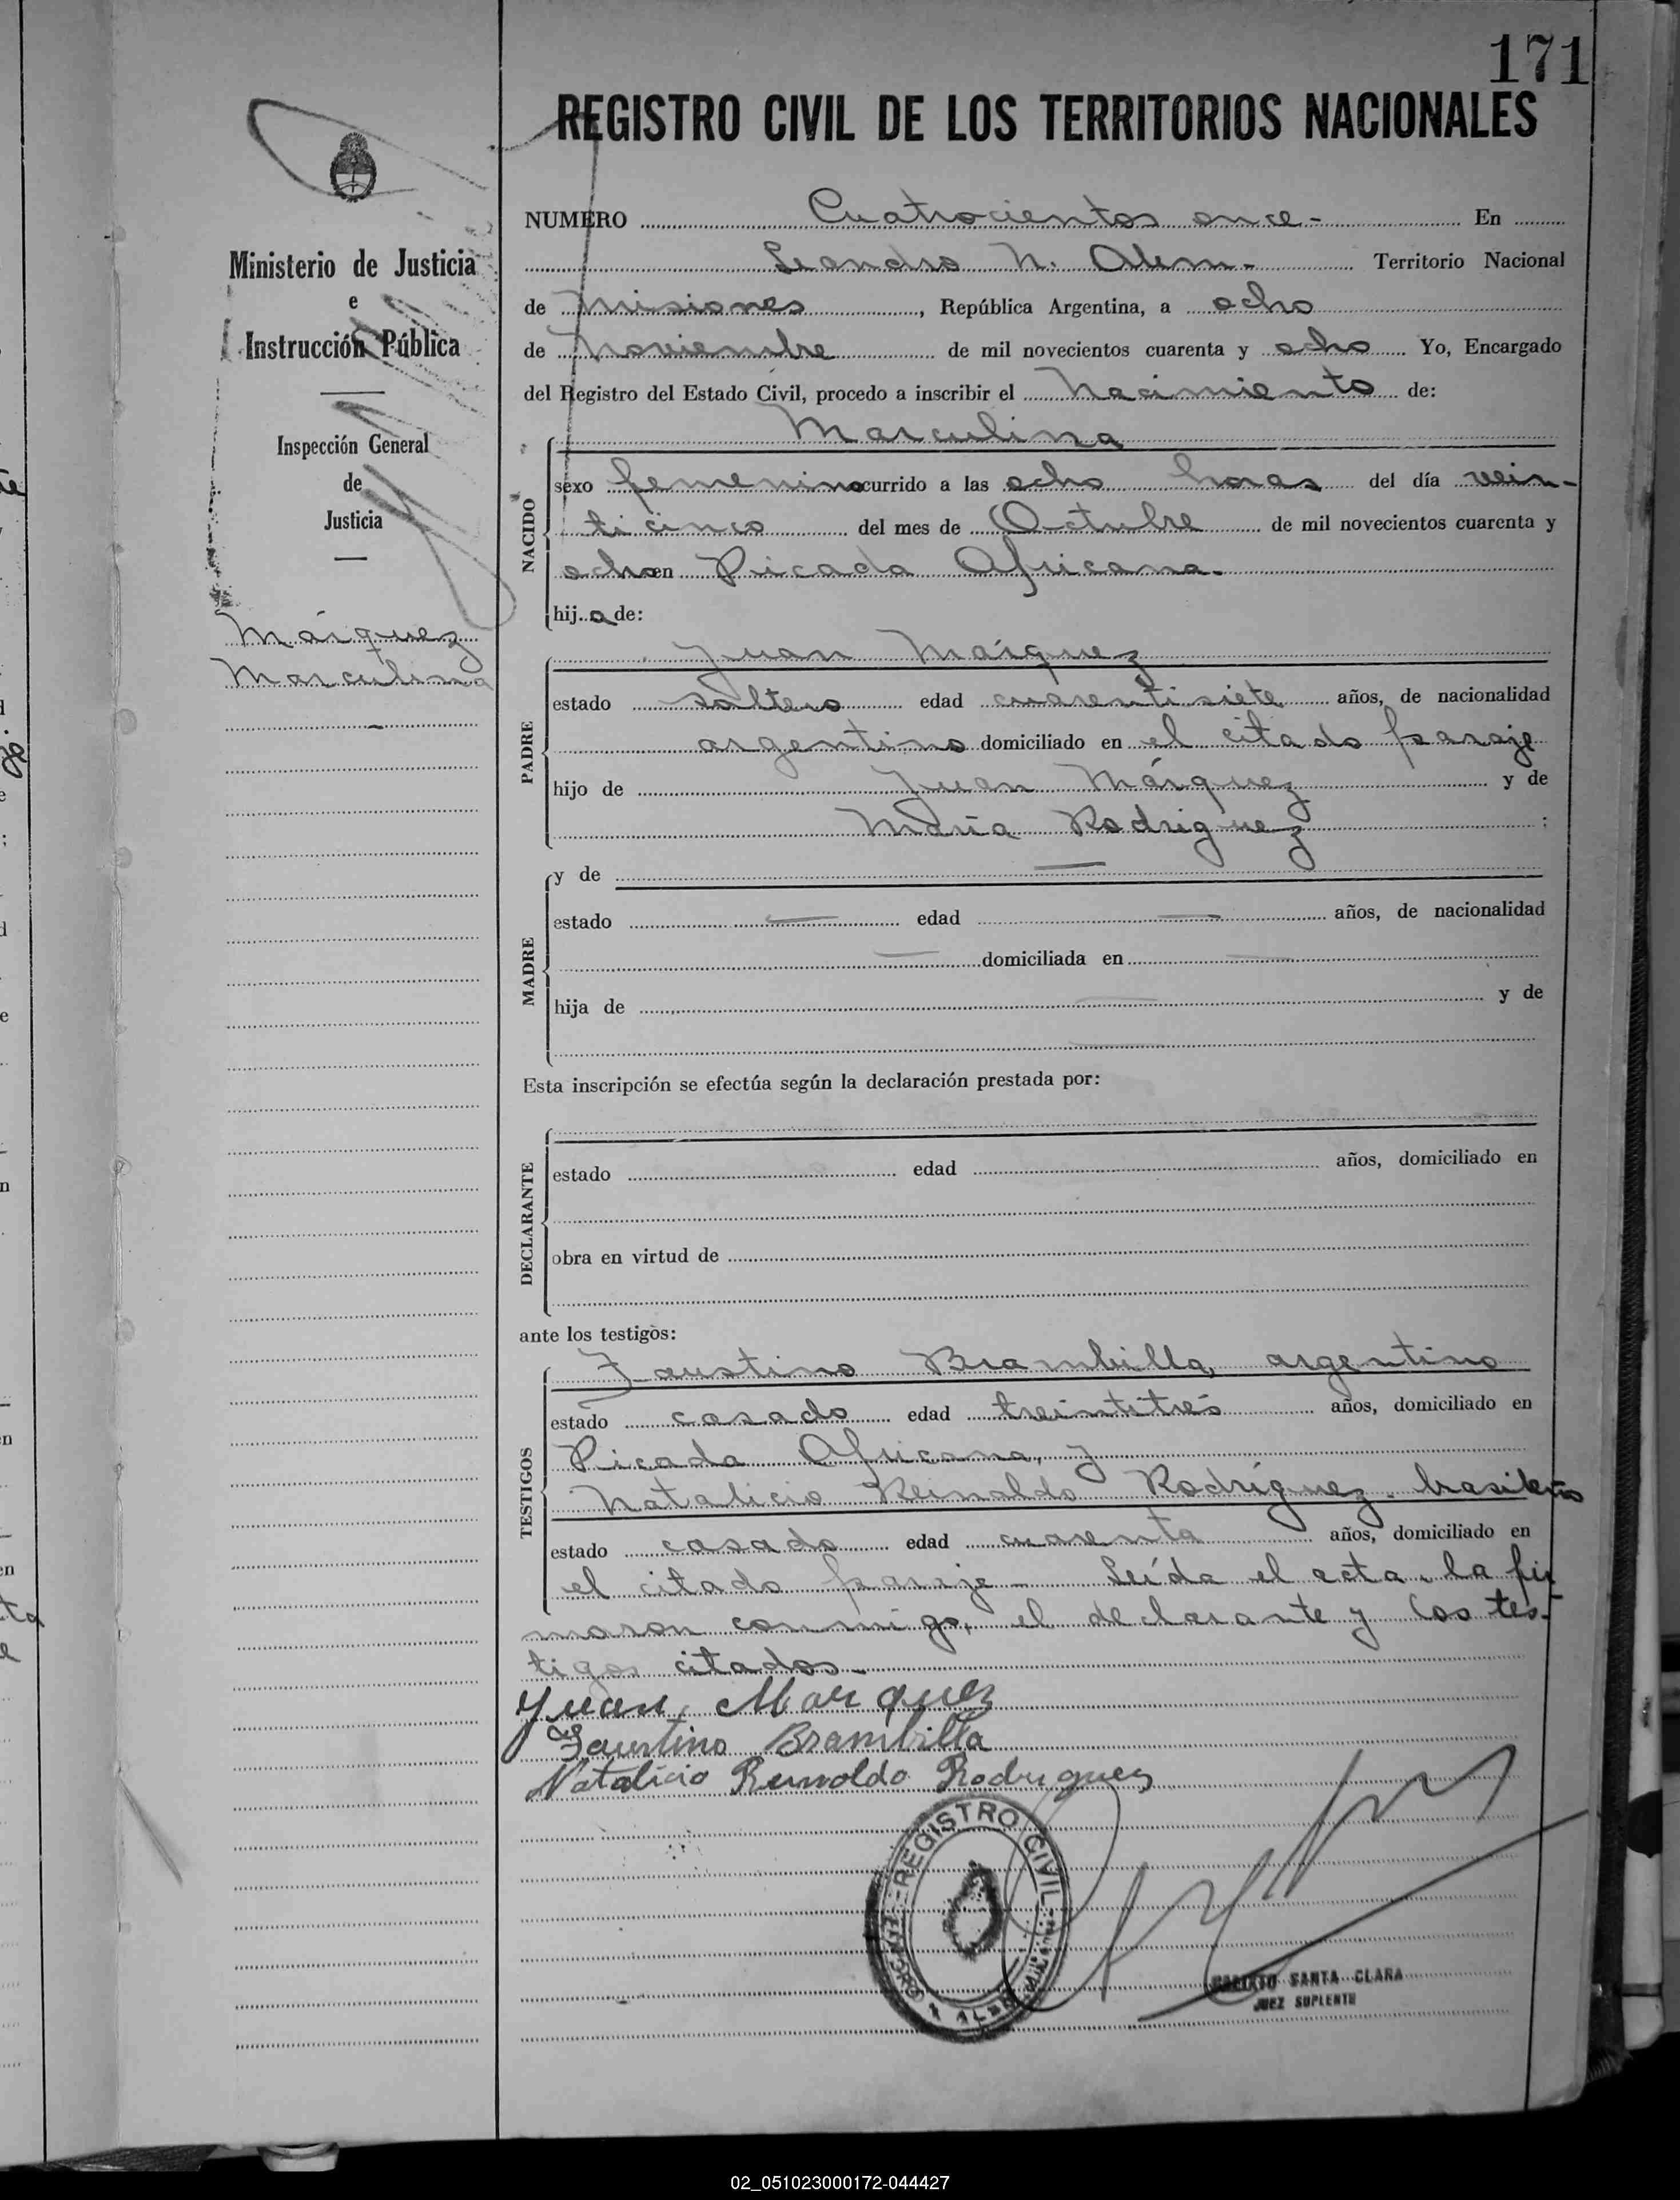 171
REGISTRO CIVIL DE LOS TERRITORIOS NACIONALES
Ministerio de Justicia
e
Instrucción Pública
Inspección General
de
Justicia
Márquez
Marculina
NUMERO Cuatrocientos once.- En
Leandro N. Alem.- Territorio Nacional
de Misiones, República Argentina, a ocho
de Noviembre de mil novecientos cuarenta y ocho Yo, Encargado
del Registro del Estado Civil, procedo a inscribir el Nacimiento de:
NACIDO
Marculina
sexo femenino ocurrido a las ocho horas del día vein-
ticinco del mes de Octubre de mil novecientos cuarenta y
ocho en Picada Africana.
hij a de:
PADRE
Juan Márquez
estado soltero edad cuarentisiete años, de nacionalidad
argentino domiciliado en el citado paraje
hijo de Juan Márquez y de
María Rodriguez ;
MADRE
y de —
estado — edad — años, de nacionalidad
— domiciliada en —
hija de — y de
—
Esta inscripción se efectúa según la declaración prestada por:
DECLARANTE
estado edad años, domiciliado en
obra en virtud de
ante los testigos:
TESTIGOS
Faustino Brambilla, argentino
estado casado edad treintitrés años, domiciliado en
Picada Africana, y
Natalicio Reinaldo Rodríguez. brasileño
estado casado edad cuarenta años, domiciliado en
el citado paraje - Leída el acta, la fir
maron conmigo, el declarante y los tes-
tigos citados.-
Juan Marquez
Faustino Brambilla
Natalicio Reinoldo Rodriguez
REGISTRO CIVIL
SANTA CLARA
JUEZ SUPLENTE
02_051023000172-044427